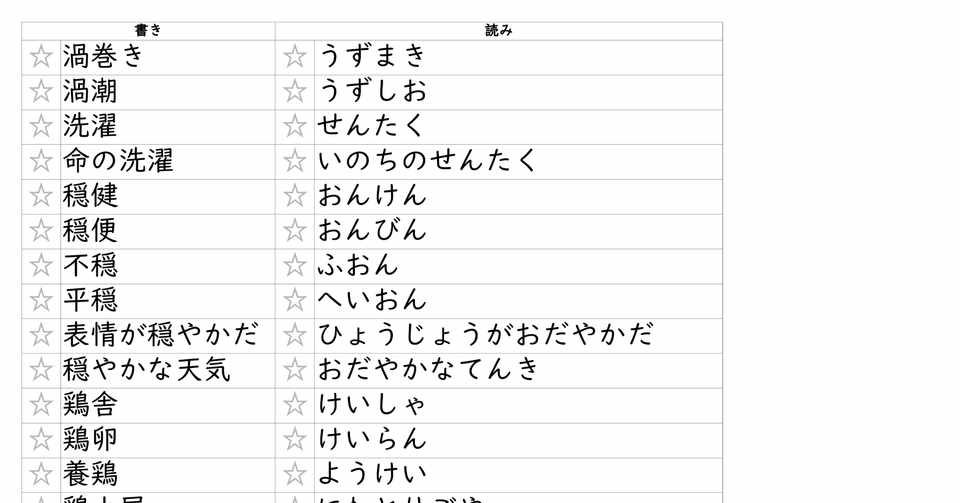 書き 読み
☆ 渦巻き ☆ うずまき
☆ 渦潮 ☆ うずしお
☆ 洗濯 ☆ せんたく
☆ 命の洗濯 ☆ いのちのせんたく
☆ 穏健 ☆ おんけん
☆ 穏便 ☆ おんびん
☆ 不穏 ☆ ふおん
☆ 平穏 ☆ へいおん
☆ 表情が穏やかだ ☆ ひょうじょうがおだやかだ
☆ 穏やかな天気 ☆ おだやかなてんき
☆ 鶏舎 ☆ けいしゃ
☆ 鶏卵 ☆ けいらん
☆ 養鶏 ☆ ようけい